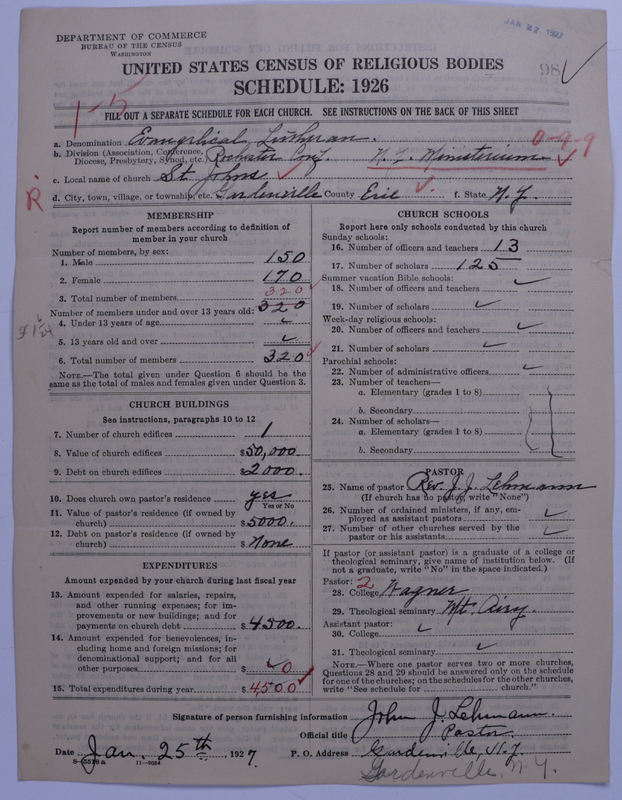 JAN 27 1927
DEPARTMENT OF COMMERCE
BUREAU OF THE CENSUS
WASHINGTON
UNITED STATES CENSUS OF RELIGIOUS BODIES
98
SCHEDULE: 1926
1-5
FILL OUT A SEPARATE SCHEDULE FOR EACH CHURCH. SEE INSTRUCTIONS ON THE BACK OF THIS SHEET
0-9-9
a. Denomination Evangelical Lutheran.
b. Division (Association, Conference, Diocese, Presbytery, Synod, etc.) Rochester Conf. N.Y. Ministerium
c. Local name of church St Johns
R
d. City, town, village, or township, etc. Gardenville County Erie f. State N.Y.
MEMBERSHIP
Report number of members according to definition of
member in your church
Number of members, by sex:
1. Male 150
2. Female 170
320
3. Total number of members
Number of members under and over 13 years old: 320
4. Under 13 years of age
5. 13 years old and over
6. Total number of members 320
NOTE.—The total given under Question 6 should be the
same as the total of males and females given under Question 3.
CHURCH BUILDINGS
See instructions, paragraphs 10 to 12
7. Number of church edifices 1
8. Value of church edifices $50,000.
9. Debt on church edifices $2000.
10. Does church own pastor's residence yes
Yes or No
11. Value of pastor's residence (if owned by
church) $5000.
12. Debt on pastor's residence (if owned by
church) $None
EXPENDITURES
Amount expended by your church during last fiscal year
13. Amount expended for salaries, repairs,
and other running expenses; for im-
provements or new buildings; and for
payments on church debt $4500.
14. Amount expended for benevolences, in-
cluding home and foreign missions; for
denominational support; and for all
other purposes $0
15. Total expenditures during year $4500
CHURCH SCHOOLS
Report here only schools conducted by this church
Sunday schools:
16. Number of officers and teachers 13
17. Number of scholars 125
Summer vacation Bible schools:
18. Number of officers and teachers
19. Number of scholars
Week-day religious schools:
20. Number of officers and teachers
21. Number of scholars
Parochial schools:
22. Number of administrative officers
23. Number of teachers—
a. Elementary (grades 1 to 8)
b. Secondary
24. Number of scholars—
a. Elementary (grades 1 to 8)
b. Secondary
PASTOR
25. Name of pastor Rev. J. J. Lehmann
(If church has no pastor, write "None")
26. Number of ordained ministers, if any, em-
ployed as assistant pastors
27. Number of other churches served by the
pastor or his assistants
If pastor (or assistant pastor) is a graduate of a college or
theological seminary, give name of institution below. (If
not a graduate, write "No" in the space indicated.)
Pastor: 2
28. College Wagner
29. Theological seminary Mt. Airy.
Assistant pastor:
30. College
31. Theological seminary
NOTE.—Where one pastor serves two or more churches,
Questions 28 and 29 should be answered only on the schedule
for one of the churches; on the schedules for the other churches,
write "See schedule for church."
Signature of person furnishing information John J. Lehmann.
Official title Pastor
Date Jan. 25th, 1927. P. O. Address Gardenville, N.Y.
8-5518a 11-9084
Gardenville, N.Y.